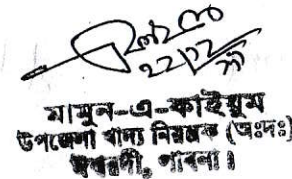 ২২/১২/
মামুন-এ-কাইয়ুম
উপজেলা খাদ্য নিয়ন্ত্রক (অঃদাঃ)
ঈশ্বরদী, পাবনা।